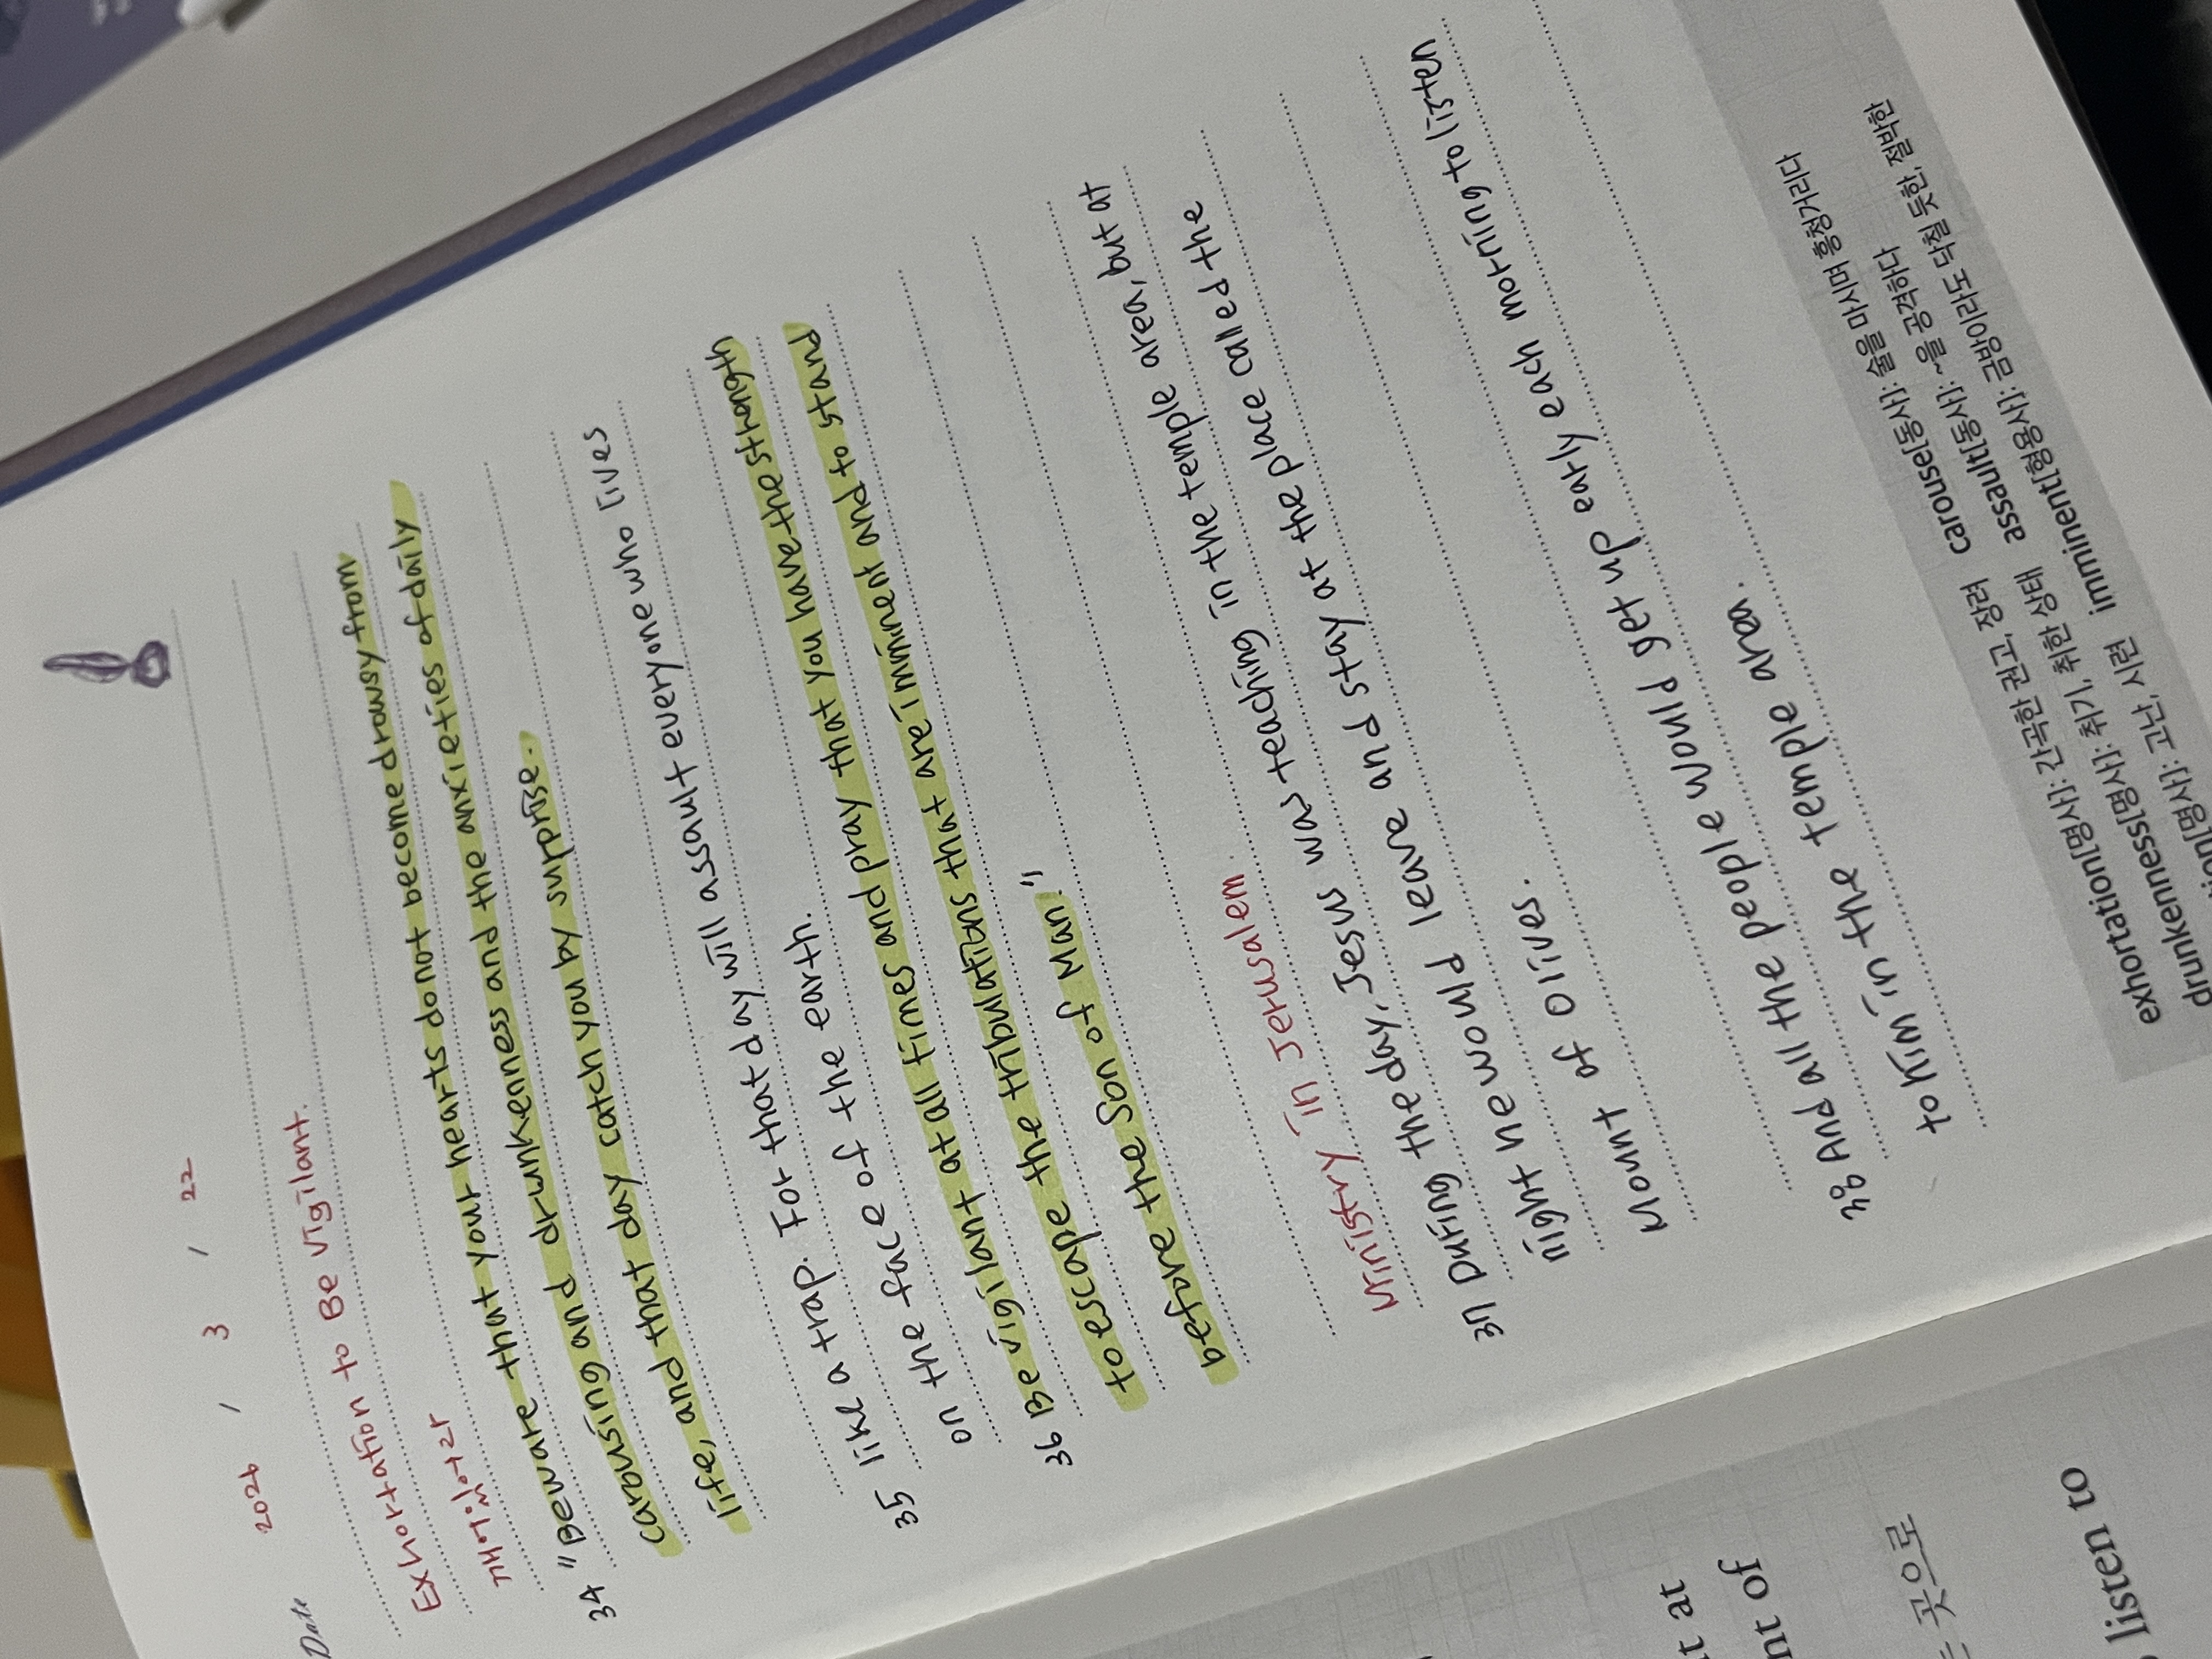 Date 2024 / 3 / 22
Exhortation to Be Vigilant.
깨어있어라
34 "Beware that your hearts do not become drowsy from
carousing and drunkenness and the anxieties of daily
life, and that day catch you by surprise.
35 like a trap. For that day will assault everyone who lives
on the face of the earth.
36 Be vigilant at all times and pray that you have the strength
to escape the tribulations that are imminent and to stand
before the Son of Man."
Ministry in Jerusalem.
37 During the day, Jesus was teaching in the temple area, but at
night he would leave and stay at the place called the
Mount of Olives.
38 And all the people would get up early each morning to listen
to him in the temple area.
exhortation[명사]: 간곡한 권고, 장려 carouse[동사]: 술을 마시며 흥청거리다
drunkenness[명사]: 취기, 취한 상태 assault[동사]: ~을 공격하다
[명사]: 고난, 시련 imminent[형용사]: 금방이라도 닥칠 듯한, 절박한
at
of
곳으로
listen to